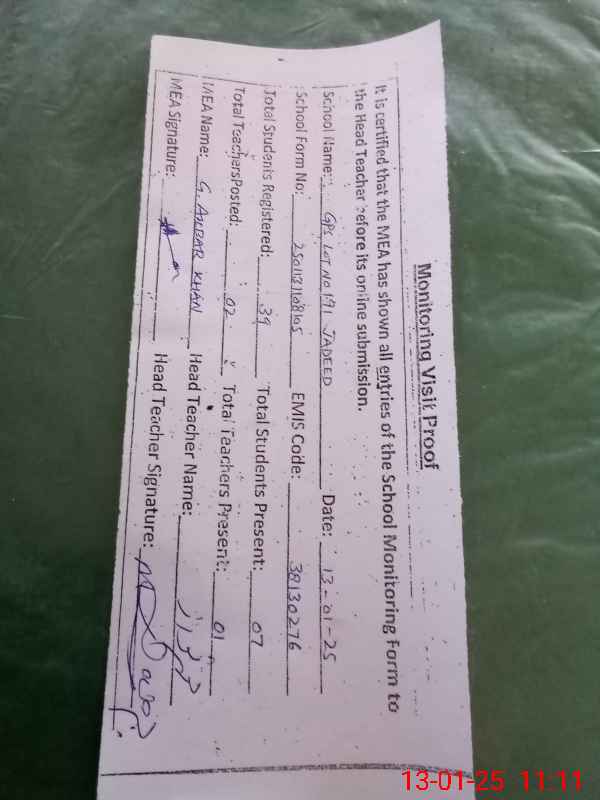 Monitoring Visit Proof
It is certified that the MEA has shown all entries of the School Monitoring Form to
the Head Teacher before its online submission.
School Name: GPS LOT NO 191 JADEED Date: 13-01-25
School Form No: EMIS Code: 38130276
Total Students Registered: 39 Total Students Present: 07
Total Teachers Posted: 02 Total Teachers Present: 01
MEA Name: G. AKBAR KHAN Head Teacher Name:
MEA Signature: Head Teacher Signature:
13-01-25 11:11